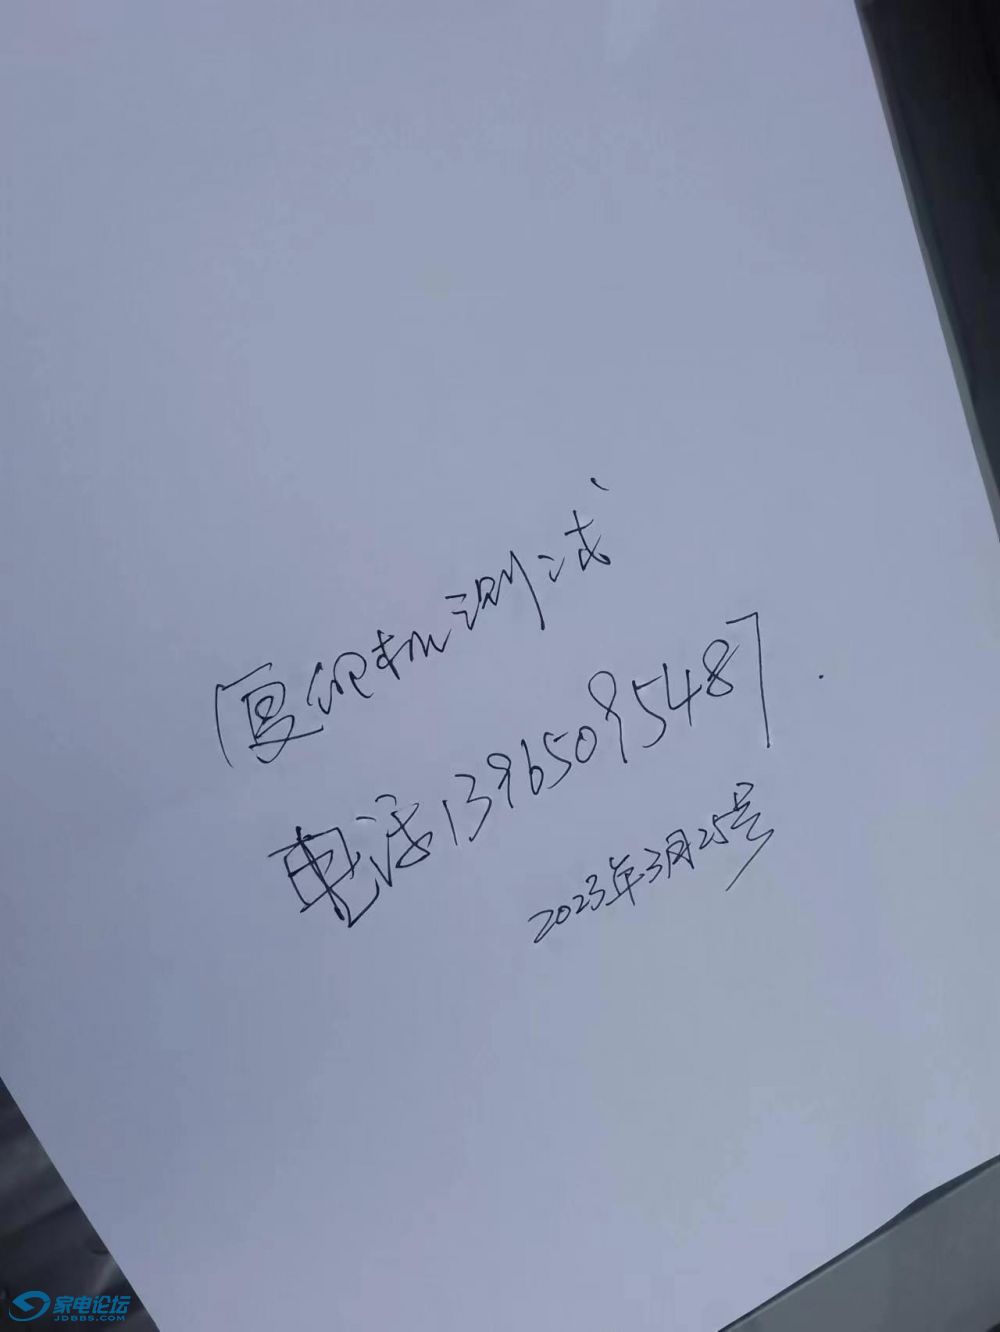 复印机测试
电话13965095487
2023年3月25号
家电论坛
JDBBS.COM